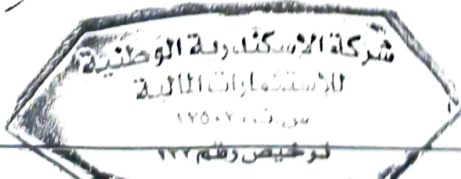 شركة الإسكندرية الوطنية
للإستثمارات المالية
س.ت.
ترخيص رقم ٢٣٢